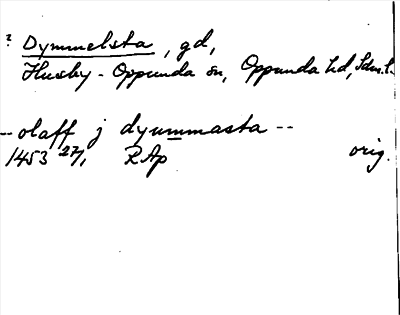 ? Dymmelsta, gd,
Husby-Oppunda sn, Oppunda hd, Sdm.l.
-- olaff j dyummasta --
1453 27/1 RAp orig.